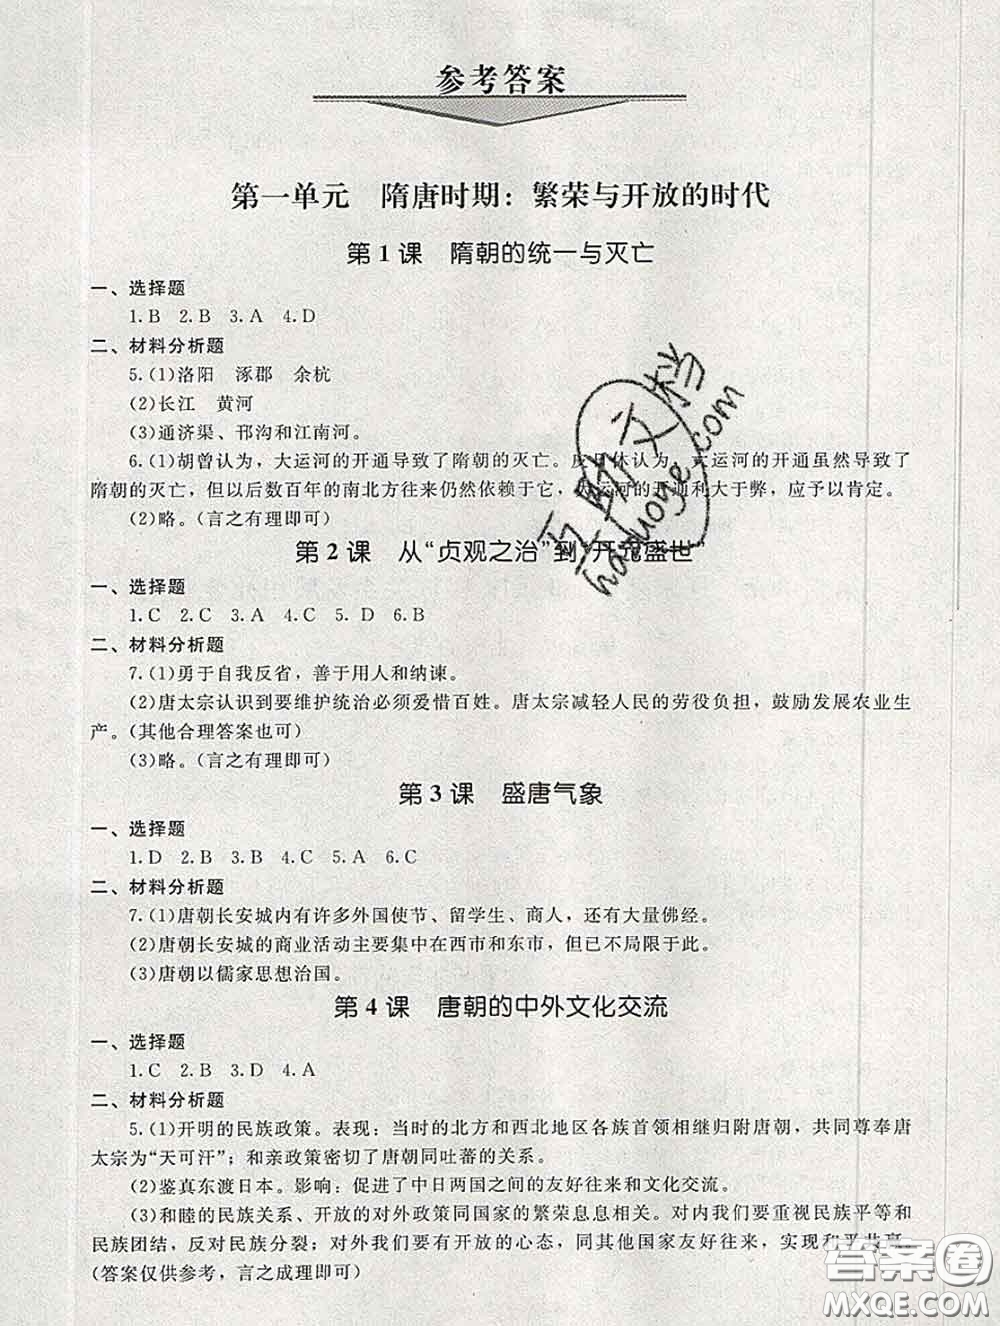 参考答案
第一单元　隋唐时期：繁荣与开放的时代
第 1 课　隋朝的统一与灭亡
一、选择题
1.B　2.B　3.A　4.D
二、材料分析题
5.(1)洛阳　涿郡　余杭
(2)长江　黄河
(3)通济渠、邗沟和江南河。
6.(1)胡曾认为，大运河的开通导致了隋朝的灭亡。皮日休认为，大运河的开通虽然导致了
隋朝的灭亡，但以后数百年的南北方往来仍然依赖于它，大运河的开通利大于弊，应予以肯定。
(2)略。(言之有理即可)
第 2 课　从“贞观之治”到“开元盛世”
一、选择题
1.C　2.C　3.A　4.C　5.D　6.B
二、材料分析题
7.(1)勇于自我反省，善于用人和纳谏。
(2)唐太宗认识到要维护统治必须爱惜百姓。唐太宗减轻人民的劳役负担，鼓励发展农业生
产。(其他合理答案也可)
(3)略。(言之有理即可)
第 3 课　盛唐气象
一、选择题
1.D　2.B　3.B　4.C　5.A　6.C
二、材料分析题
7.(1)唐朝长安城内有许多外国使节、留学生、商人，还有大量佛经。
(2)唐朝长安城的商业活动主要集中在西市和东市，但已不局限于此。
(3)唐朝以儒家思想治国。
第 4 课　唐朝的中外文化交流
一、选择题
1.C　2.B　3.D　4.A
二、材料分析题
5.(1)开明的民族政策。表现：当时的北方和西北地区各族首领相继归附唐朝，共同尊奉唐
太宗为“天可汗”；和亲政策密切了唐朝同吐蕃的关系。
(2)鉴真东渡日本。影响：促进了中日两国之间的友好往来和文化交流。
(3)和睦的民族关系、开放的对外政策同国家的繁荣息息相关。对内我们要重视民族平等和
民族团结，反对民族分裂；对外我们要有开放的心态，同其他国家友好往来，实现和平共赢。
(答案仅供参考，言之成理即可)
互助文档
hahuoye.com
答案卷
MXQE.COM